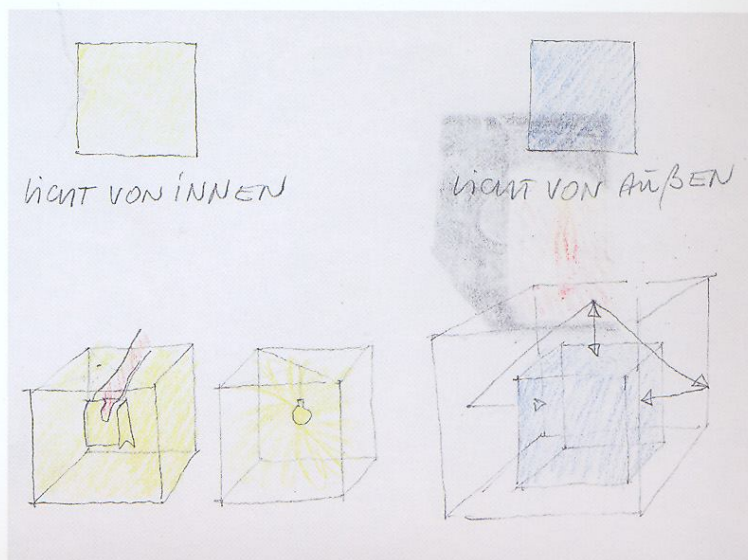 LICHT VON INNEN
LICHT VON AUßEN